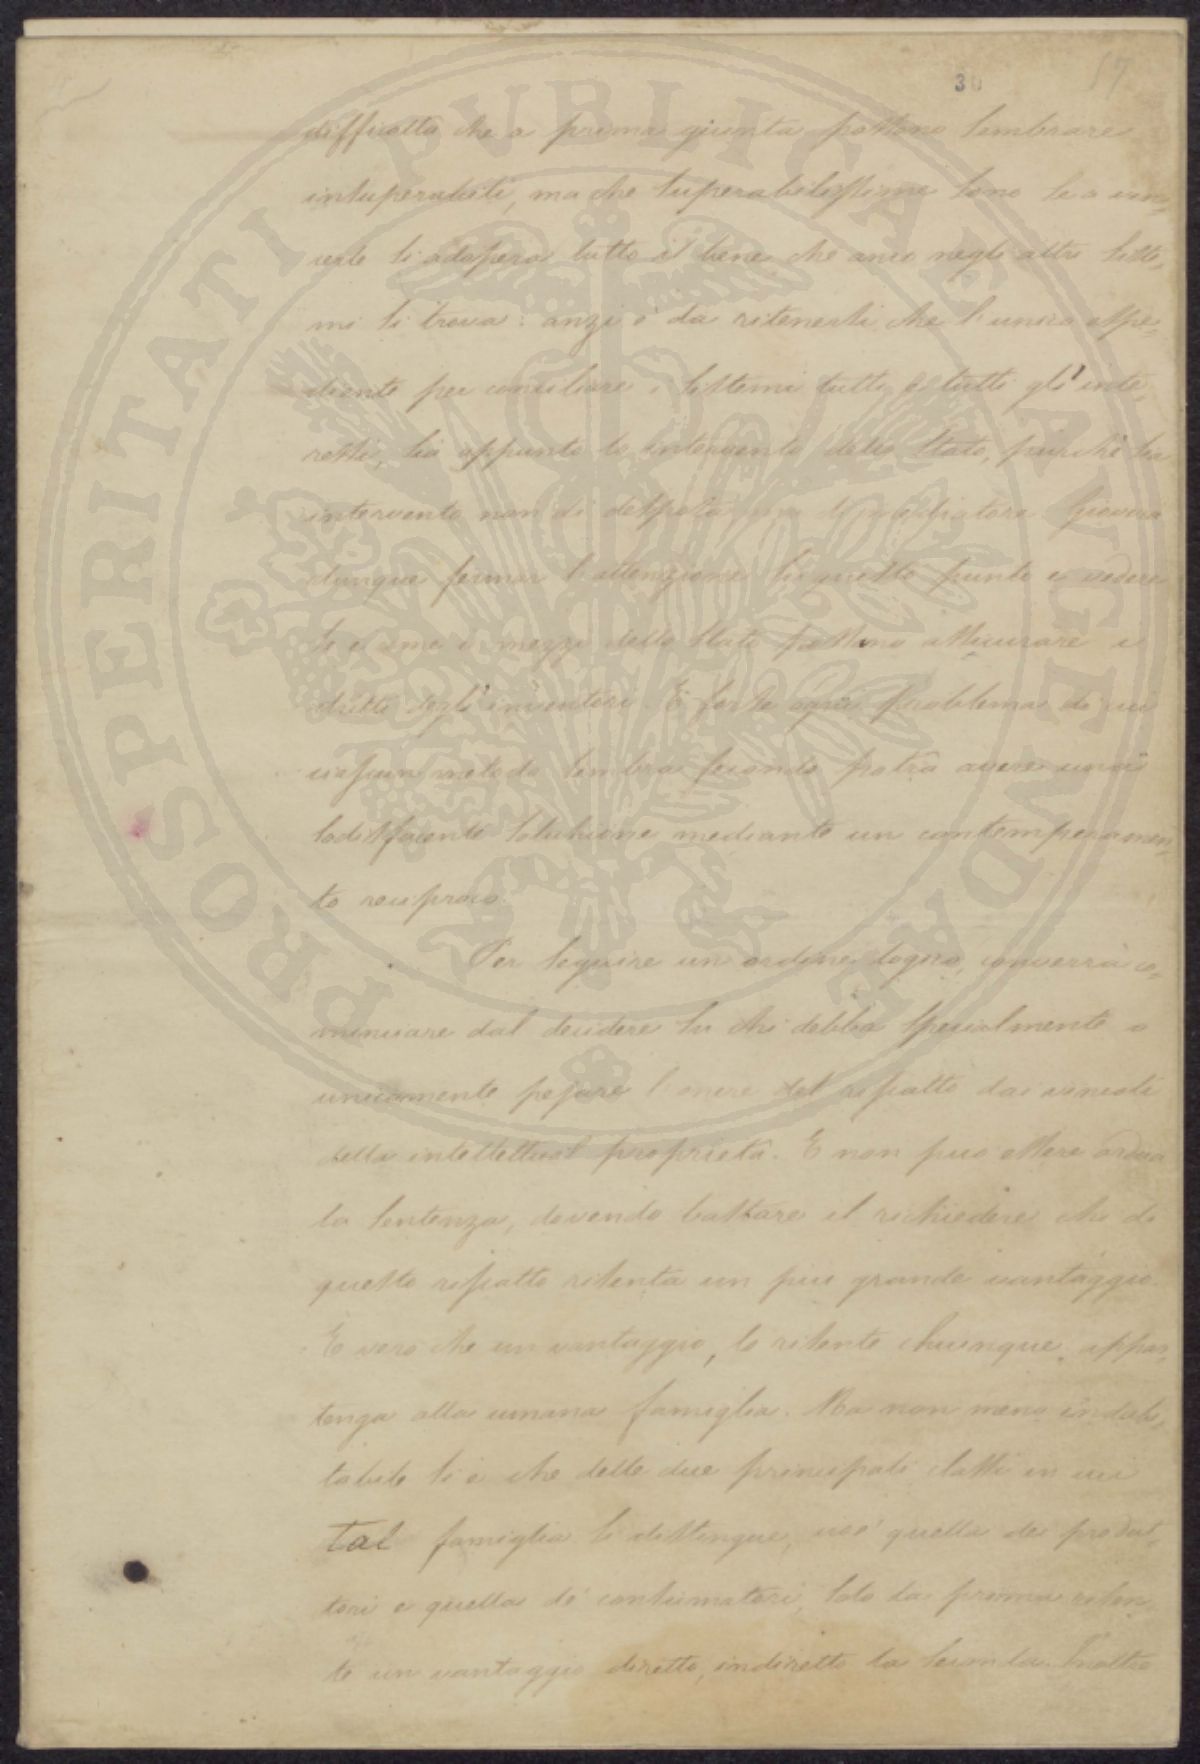 30 57
difficoltà che a prima giunta possono sembrare
insuperabili, ma che superabilissime sono se a vin-
cerle si adopera tutto il bene che anco negli altri siste-
mi si trova: anzi è da ritenersi che l'unico espe-
diente per conciliare i sistemi tutti e tutti gl'inte-
ressi, sia appunto lo intervento dello Stato, purché sia
intervento non di despota ma di mediatore. Gioverà
dunque fermar l'attenzione su questo punto e vedere
se e come i mezzi dello Stato possono assicurare i
dritti degl'inventori. E forse ogni problema di cui
ciascun metodo sembra fecondo potrà avere una
sodisfacente soluzione mediante un contemperamen-
to reciproco.
Per seguire un ordine logico, converrà co-
minciare dal decidere su chi debba specialmente o
unicamente pesare l'onere del riscatto dai vincoli
della intellettual proprietà. E non può essere ardua
la sentenza, dovendo bastare il richiedere chi di
questo riscatto risenta un più grande vantaggio.
È vero che un vantaggio, lo risente chiunque appar-
tenga alla umana famiglia. Ma non meno indubi-
tabile si è che delle due principali classi in cui
tal famiglia si distingue, cioè quella dei produt-
tori e quella de' consumatori, solo la prima risen-
te un vantaggio diretto, indiretto la seconda. Inoltre
PROSPERITATI PVBLICAE AVGENDAE